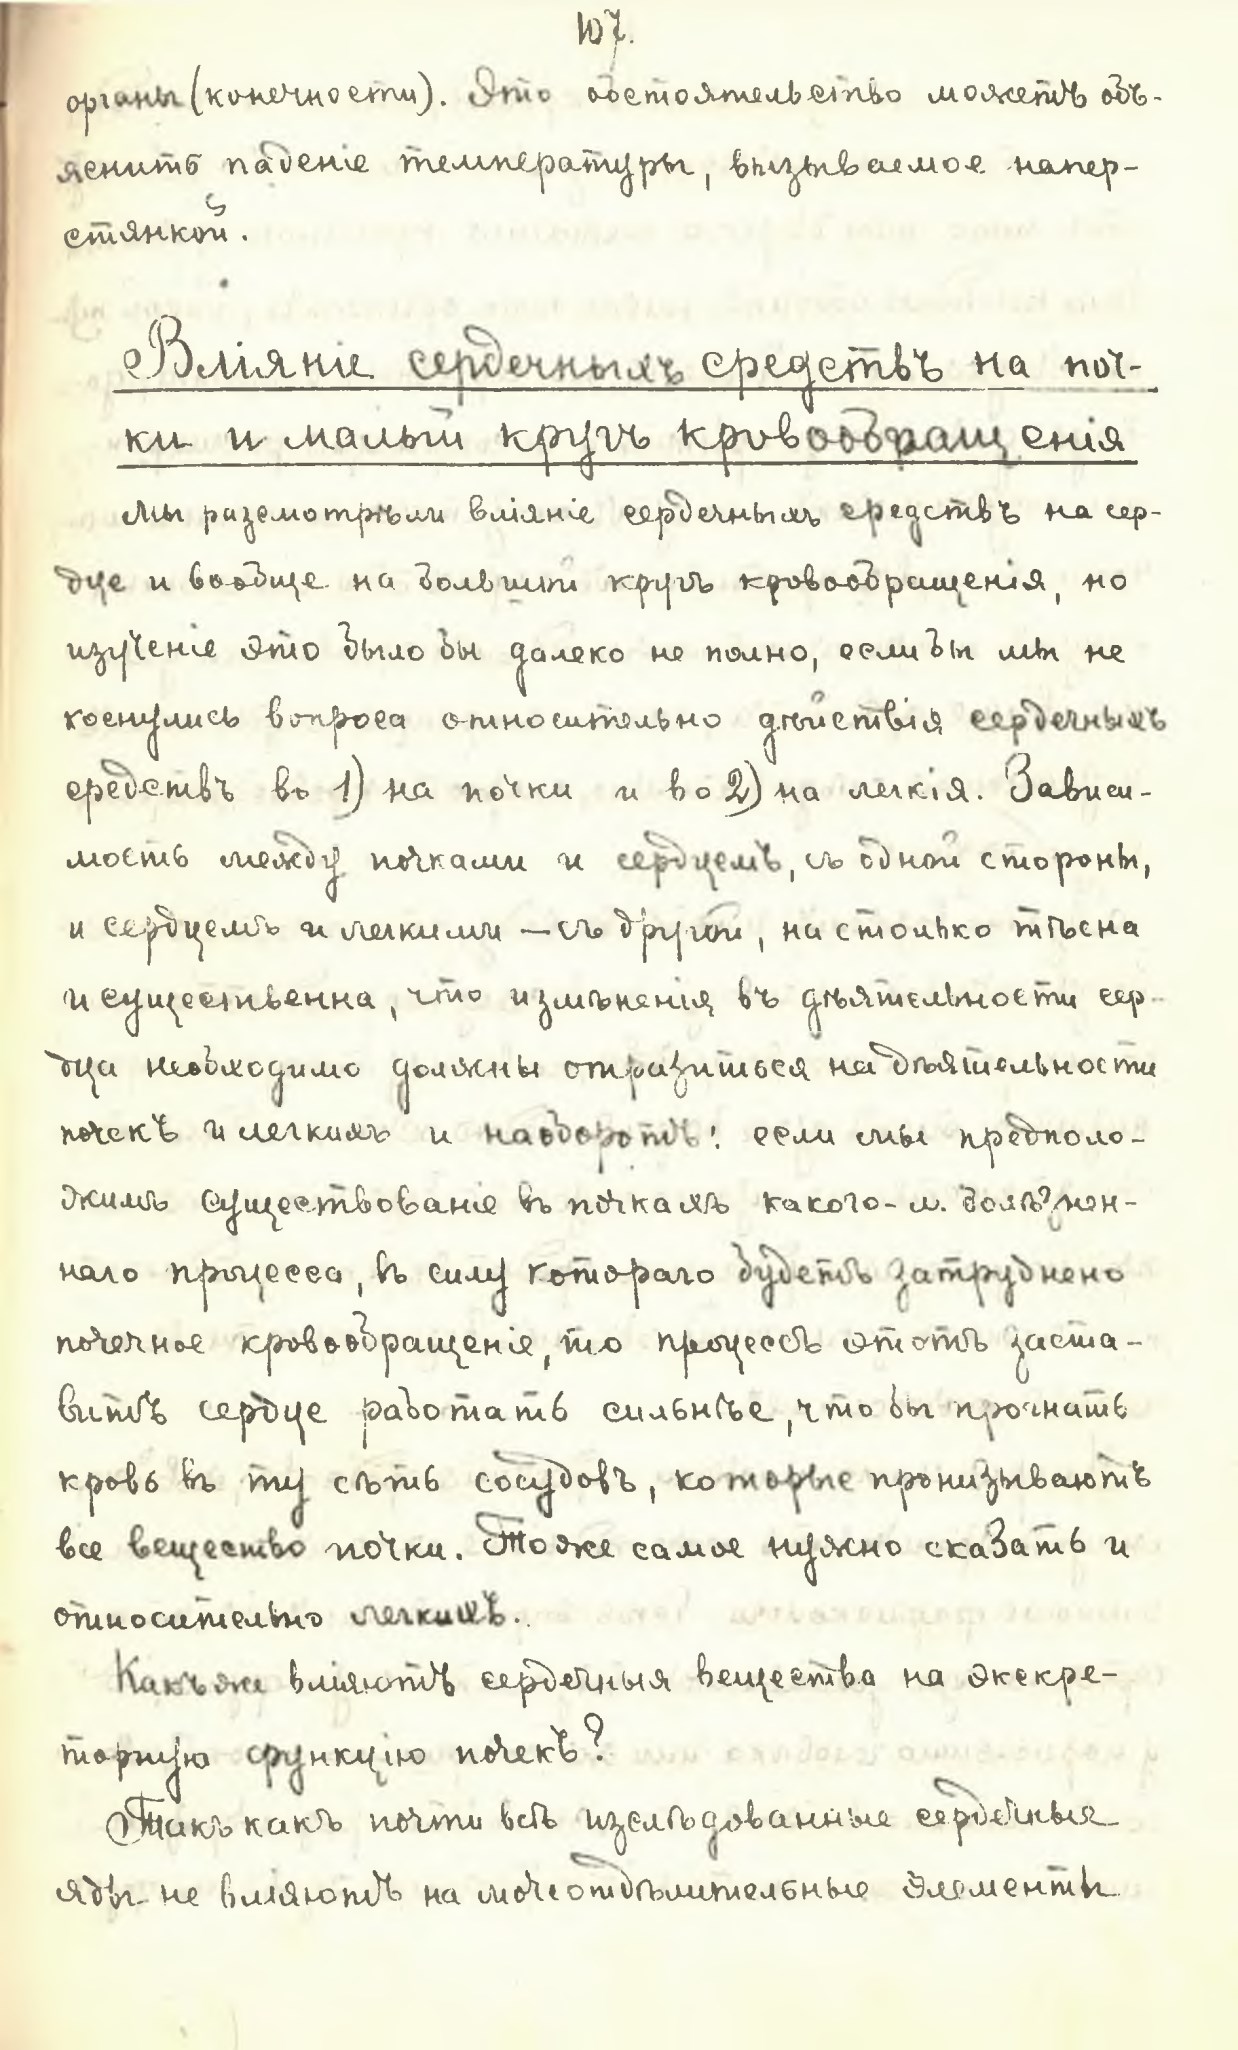 107.
органы (конечности). Это обстоятельство можетъ объ-
яснить паденіе температуры, вызываемое напер-
стянкой.
Вліяніе сердечныхъ средствъ на поч-
ки и малый кругъ кровообращенія
Мы разсмотрѣли вліяніе сердечныхъ средствъ на сер-
дце и вообще на большой кругъ кровообращенія, но
изученіе это было бы далеко не полно, если бы мы не
коснулись вопроса относительно дѣйствія сердечныхъ
средствъ во 1) на почки и во 2) на легкія. Зависи-
мость между почками и сердцемъ, съ одной стороны,
и сердцемъ и легкими — съ другой, на столько тѣсна
и существенна, что измѣненія въ дѣятельности сер-
дца необходимо должны отразиться на дѣятельности
почекъ и легкихъ и наоборотъ: если мы предполо-
жимъ существованіе въ почкахъ какого-л. болѣзнен-
наго процесса, въ силу котораго будетъ затруднено
почечное кровообращеніе, то процессъ этотъ заста-
витъ сердце работать сильнѣе, что бы прогнать
кровь въ ту сѣть сосудовъ, которые пронизываютъ
все вещество почки. Тоже самое нужно сказать и
относительно легкихъ.
Какъ же вліяютъ сердечныя вещества на экскре-
торную функцію почекъ?
Такъ какъ почти всѣ изслѣдованные сердечные
яды не вліяютъ на мочеотдѣлительные элементы